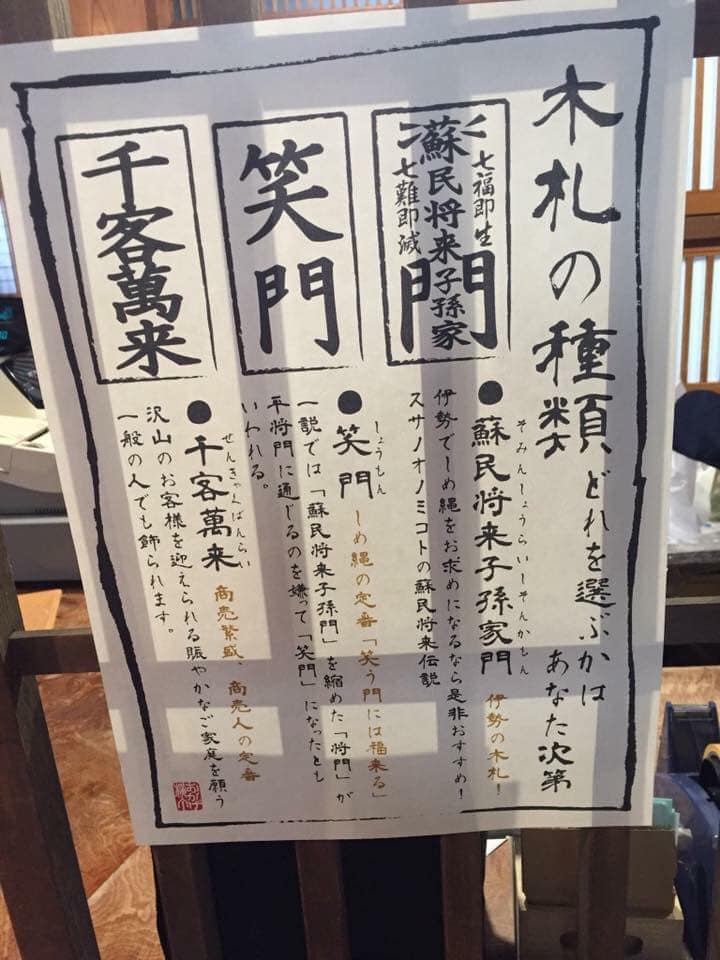 木札の種類
どれを選ぶかは
あなた次第
七福即生
蘇民将来子孫家
門
七難即滅
笑
門
千客萬来
そみんしょうらいしそんかもん
●蘇民将来子孫家門 伊勢の木札！
伊勢でしめ縄をお求めになるなら是非おすすめ！
スサノオノミコトの蘇民将来伝説
しょうもん
●笑門 しめ縄の定番「笑う門には福来る」
一説では「蘇民将来子孫門」を縮めた「将門」が
平将門に通じるのを嫌って「笑門」になったとも
いわれる。
せんきゃくばんらい
●千客萬来 商売繁盛、商売人の定番
沢山のお客様を迎えられる賑やかなご家庭を願う
一般の人でも飾られます。